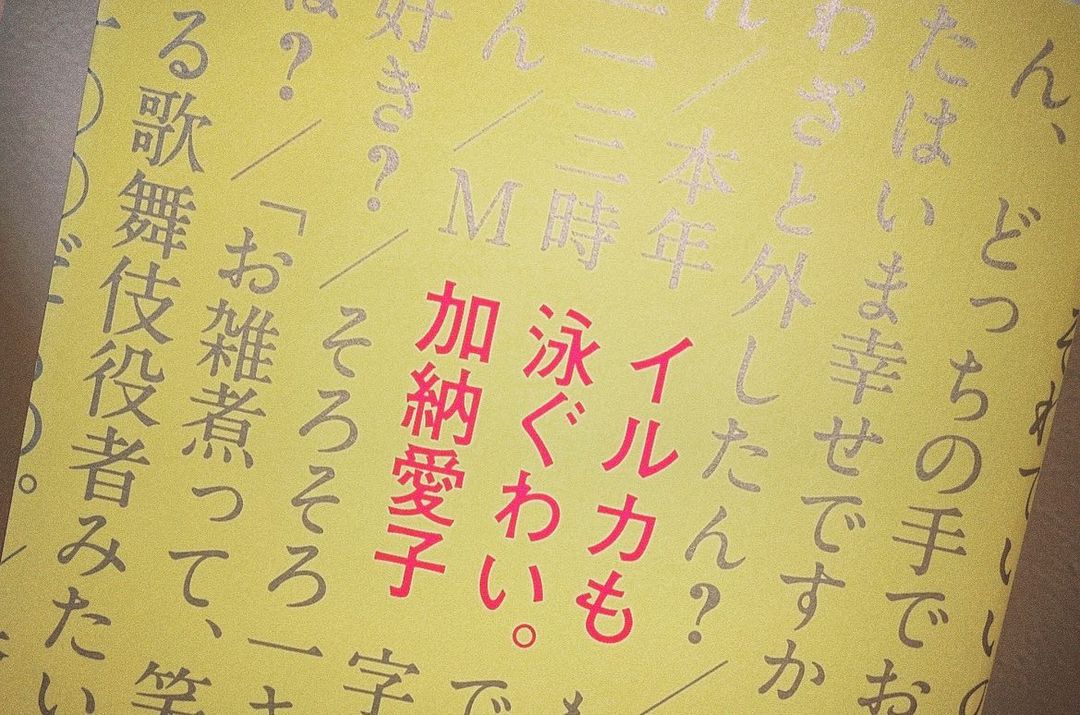 ん、どっちの手でお
たはいま幸せですか
わざと外したん?/
ル/本年
イルカも
泳ぐわい。
加納愛子
二一三時
ん/M
好き?/そろそろ一
は?/「お雑煮って、笑
る歌舞伎役者みたい
字
で